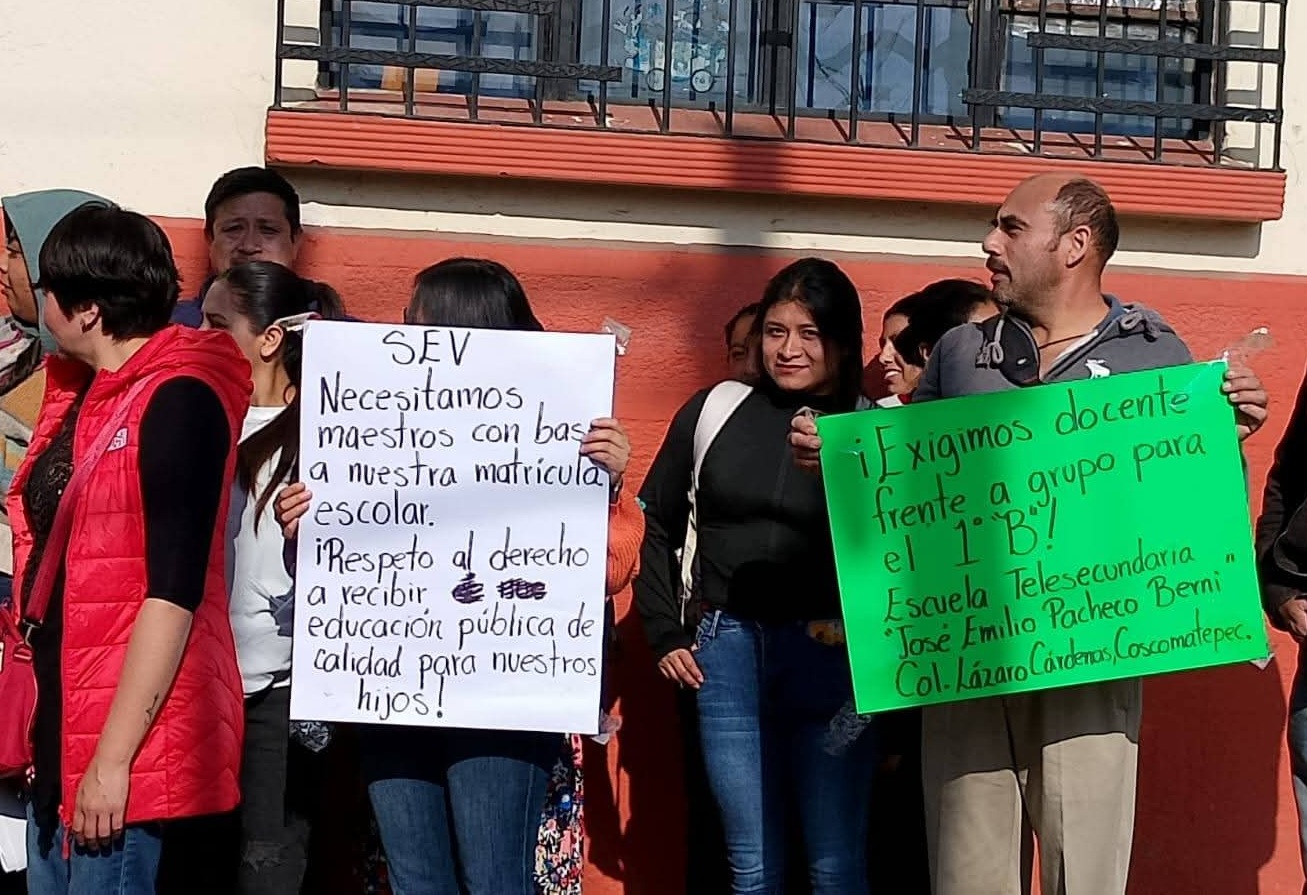 SEV
Necesitamos
maestros con bas
a nuestra matrícula
escolar.
¡Respeto al derecho
a recibir
educación pública de
calidad para nuestros
hijos!
¡Exigimos docente
frente a grupo para
el 1° "B"!
Escuela Telesecundaria
"José Emilio Pacheco Berni"
Col. Lázaro Cárdenas, Coscomatepec.